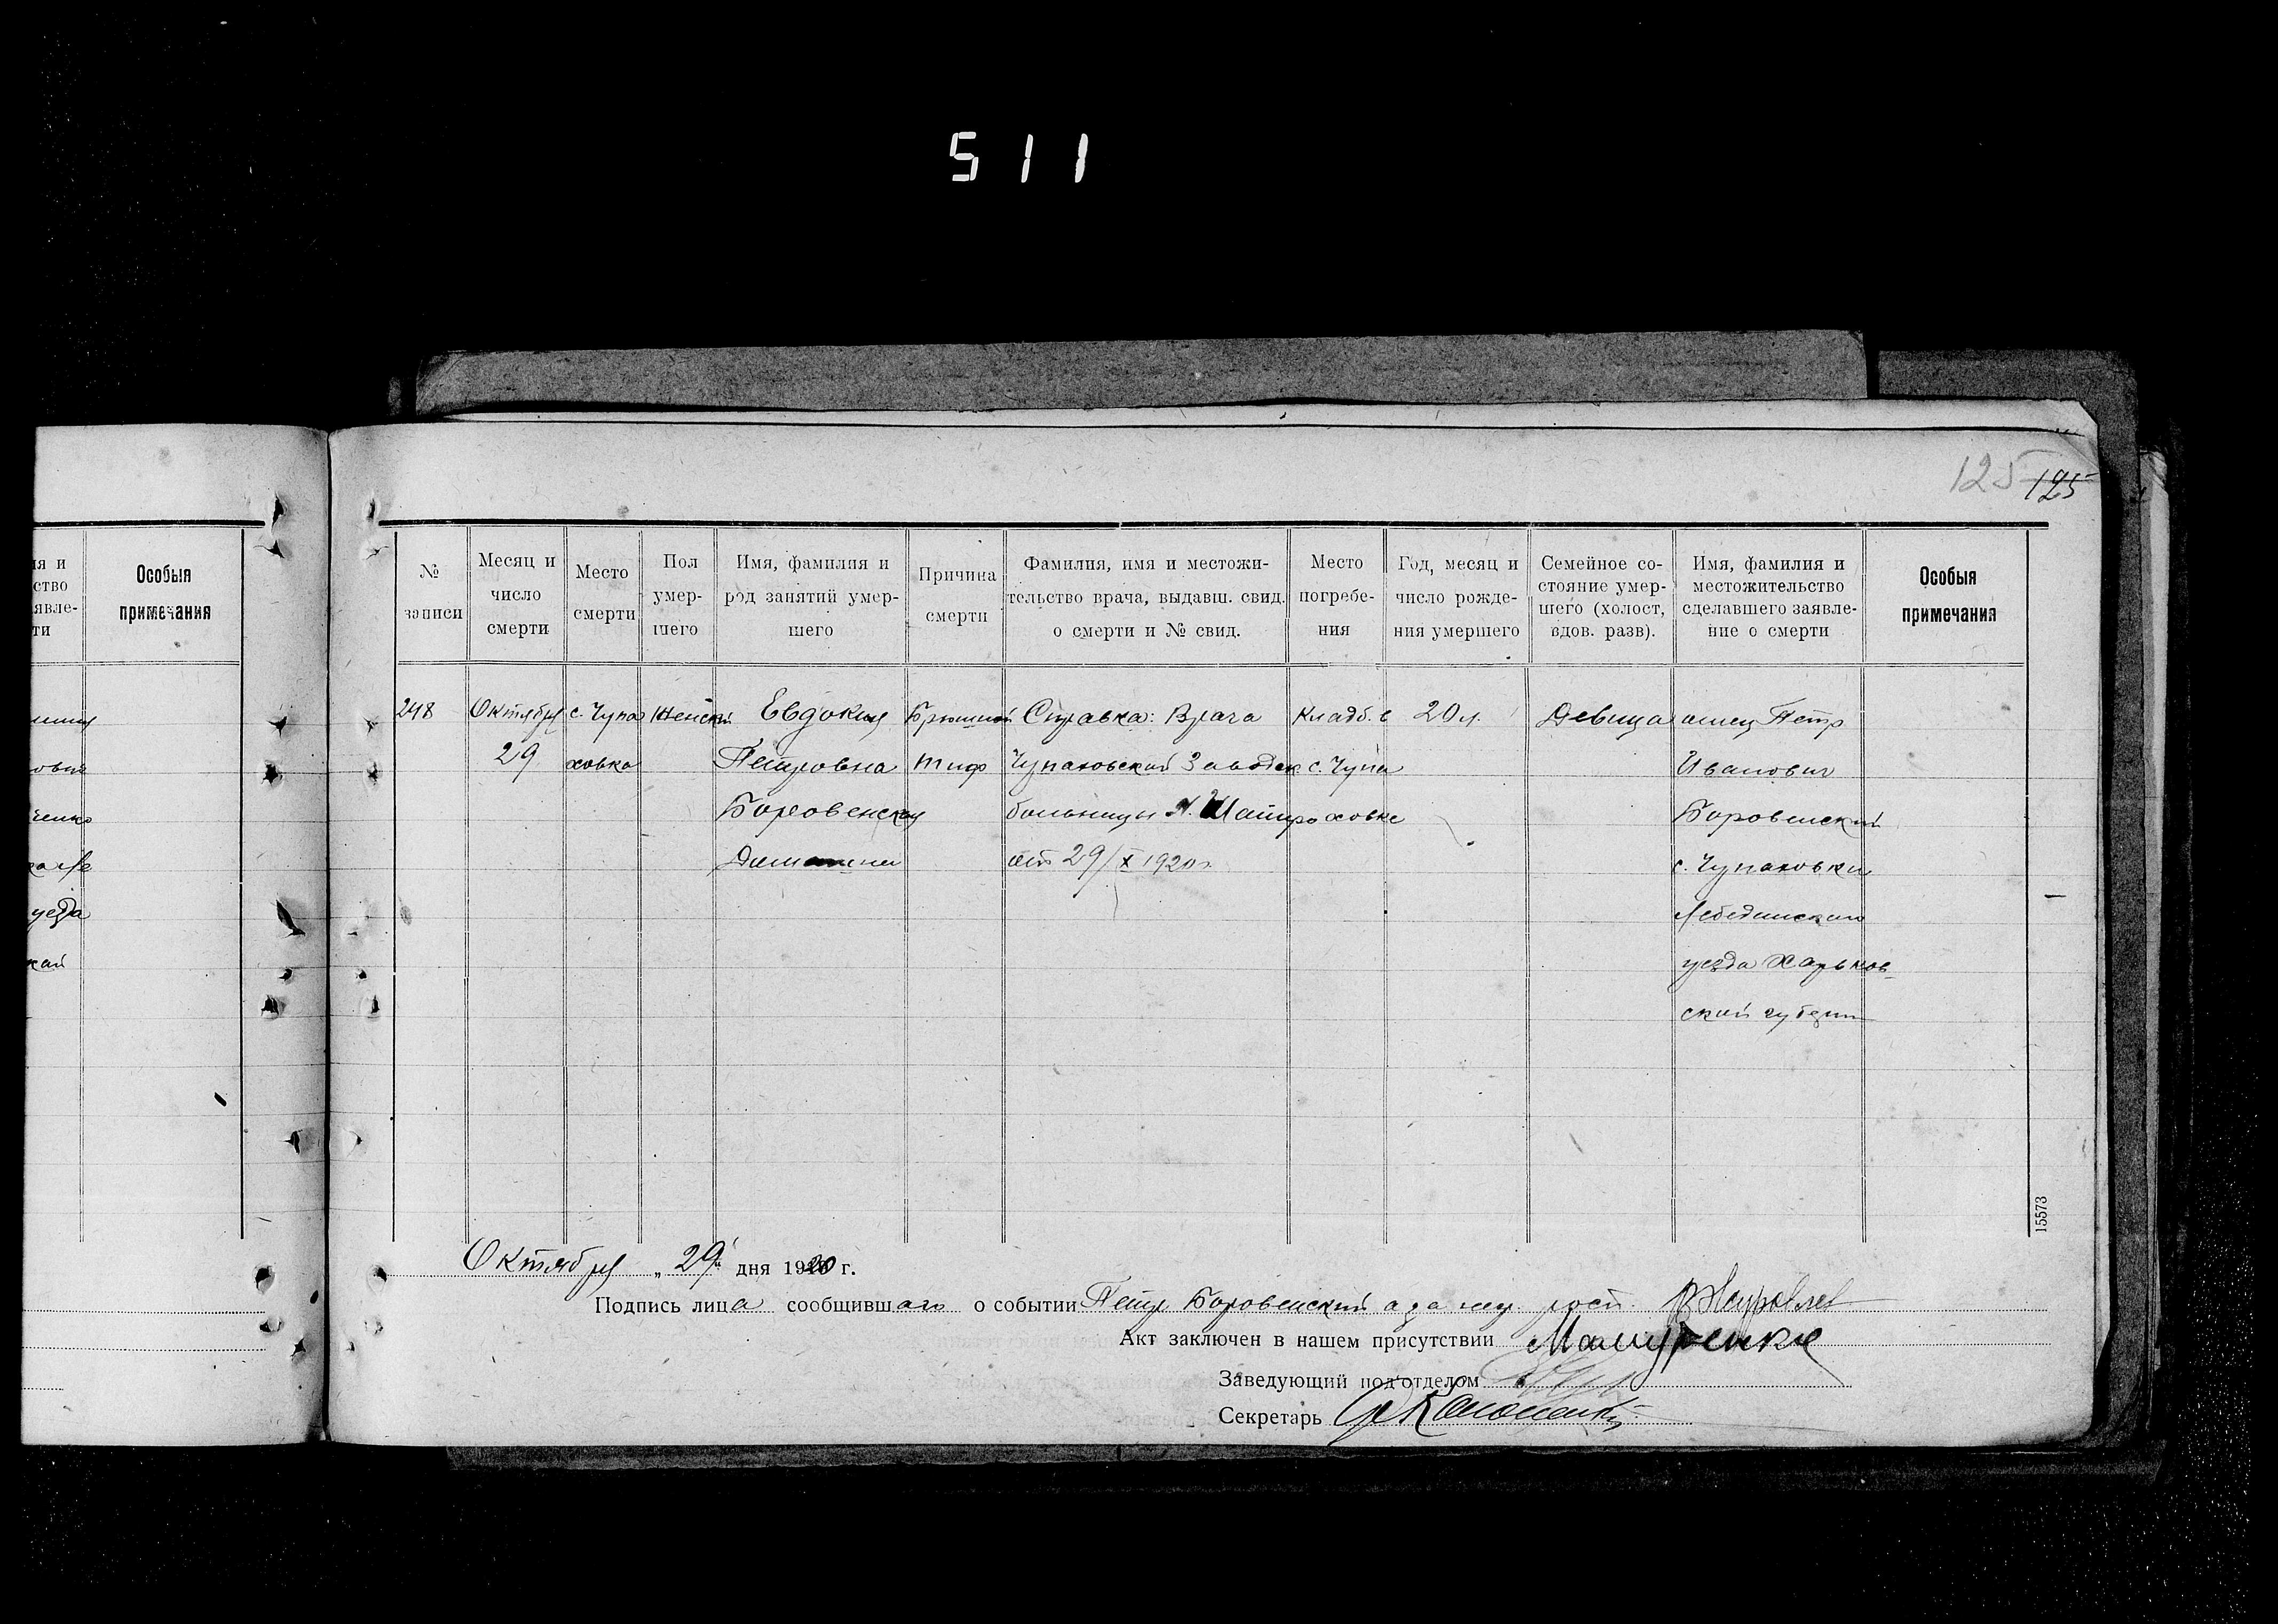 511
125 125
ия и
ство
явле-
ти
Особыя
примечания
овне
ченко
уезда
кой
№
записи
Месяц и
число
смерти
Место
смерти
Пол
умер-
шего
Имя, фамилия и
род занятий умер-
шего
Причина
смерти
Фамилия, имя и местожи-
тельство врача, выдавш. свид.
о смерти и № свид.
Место
погребе-
ния
Год, месяц и
число рожде-
ния умершего
Семейное со-
стояние умер-
шего (холост,
вдов. разв).
Имя, фамилия и
местожительство
сделавшего заявле-
ние о смерти
Особыя
примечания
248
Октября
29
с. Чупа
ховка
Женский
Евдокия
Петровна
Боровенская
Брюшной
тиф
Справка: Врача
Чупаховской Заводск.
больницы
от 29/X 1920 г.
Кладб. в
с. Чупа
ховке
20 л.
Девица
отец Петр
Иванович
Боровенский
с. Чупаховки
Лебединского
уезда Харьков-
ской губернии
15573
Октября „ 29 дня 1920 г.
Подпись лица сообщившаго о событии Петр Боровенский а за нег. росп.
Акт заключен в нашем присутствии
Заведующий под'отделом
Секретарь